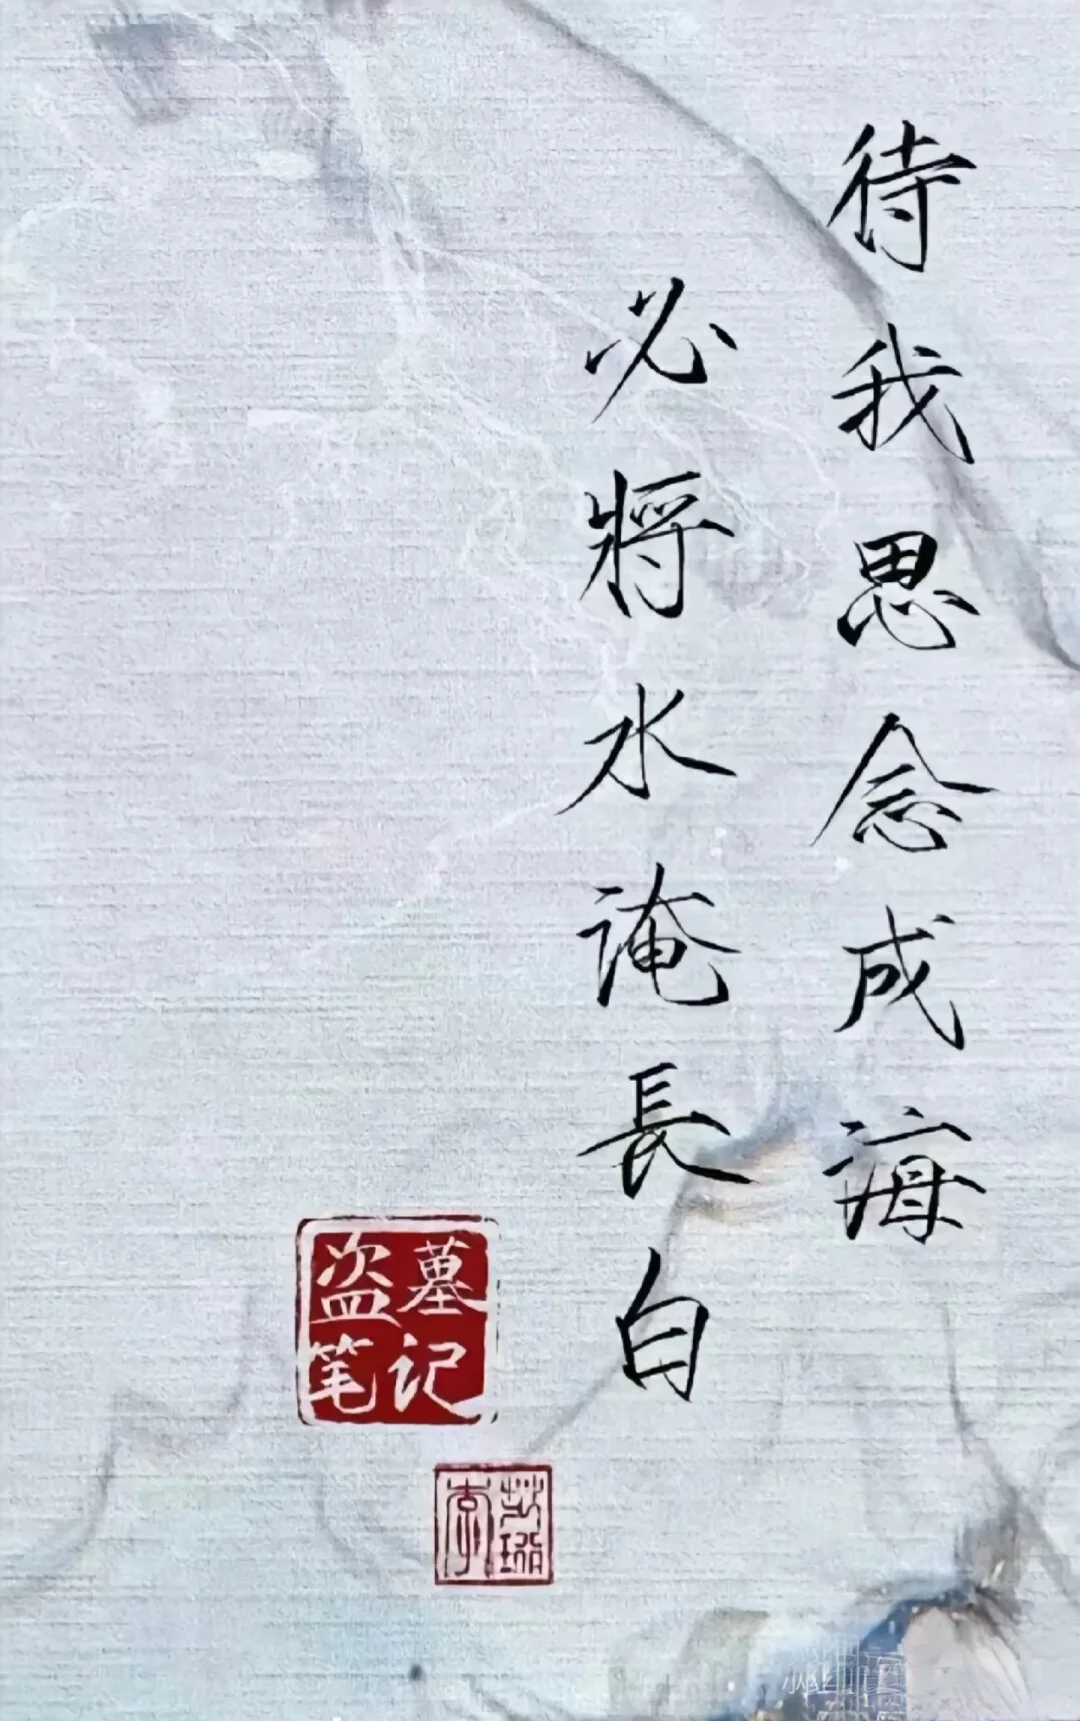 待我思念成海
必將水淹長白
盗墓
笔记